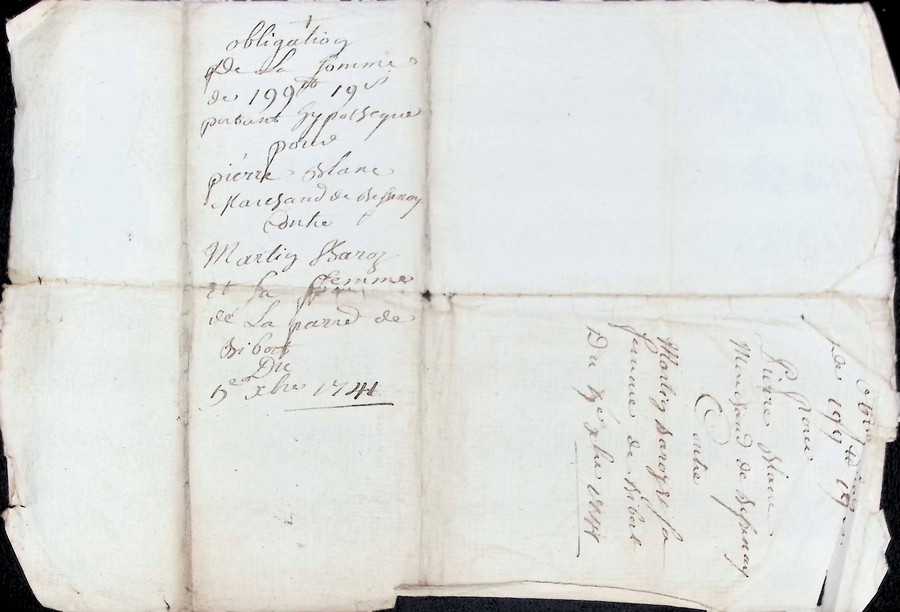 obligation
De La somme
de 199ᵗᵗ 19ˢ
portant hypotheque
pour
pierre Blanc
Marchand de Bessenay
Contre
Martin Baroz
et Sa femme
de La parre de
Bibost
Du
5ᵉ xbre 1741
De 199ᵗᵗ 19
Pour
Pierre Blanc
Marchand de Bessenay
Contre
Martin Baroz et sa
femme de Bibost
Du 5ᵉ xbre 1741